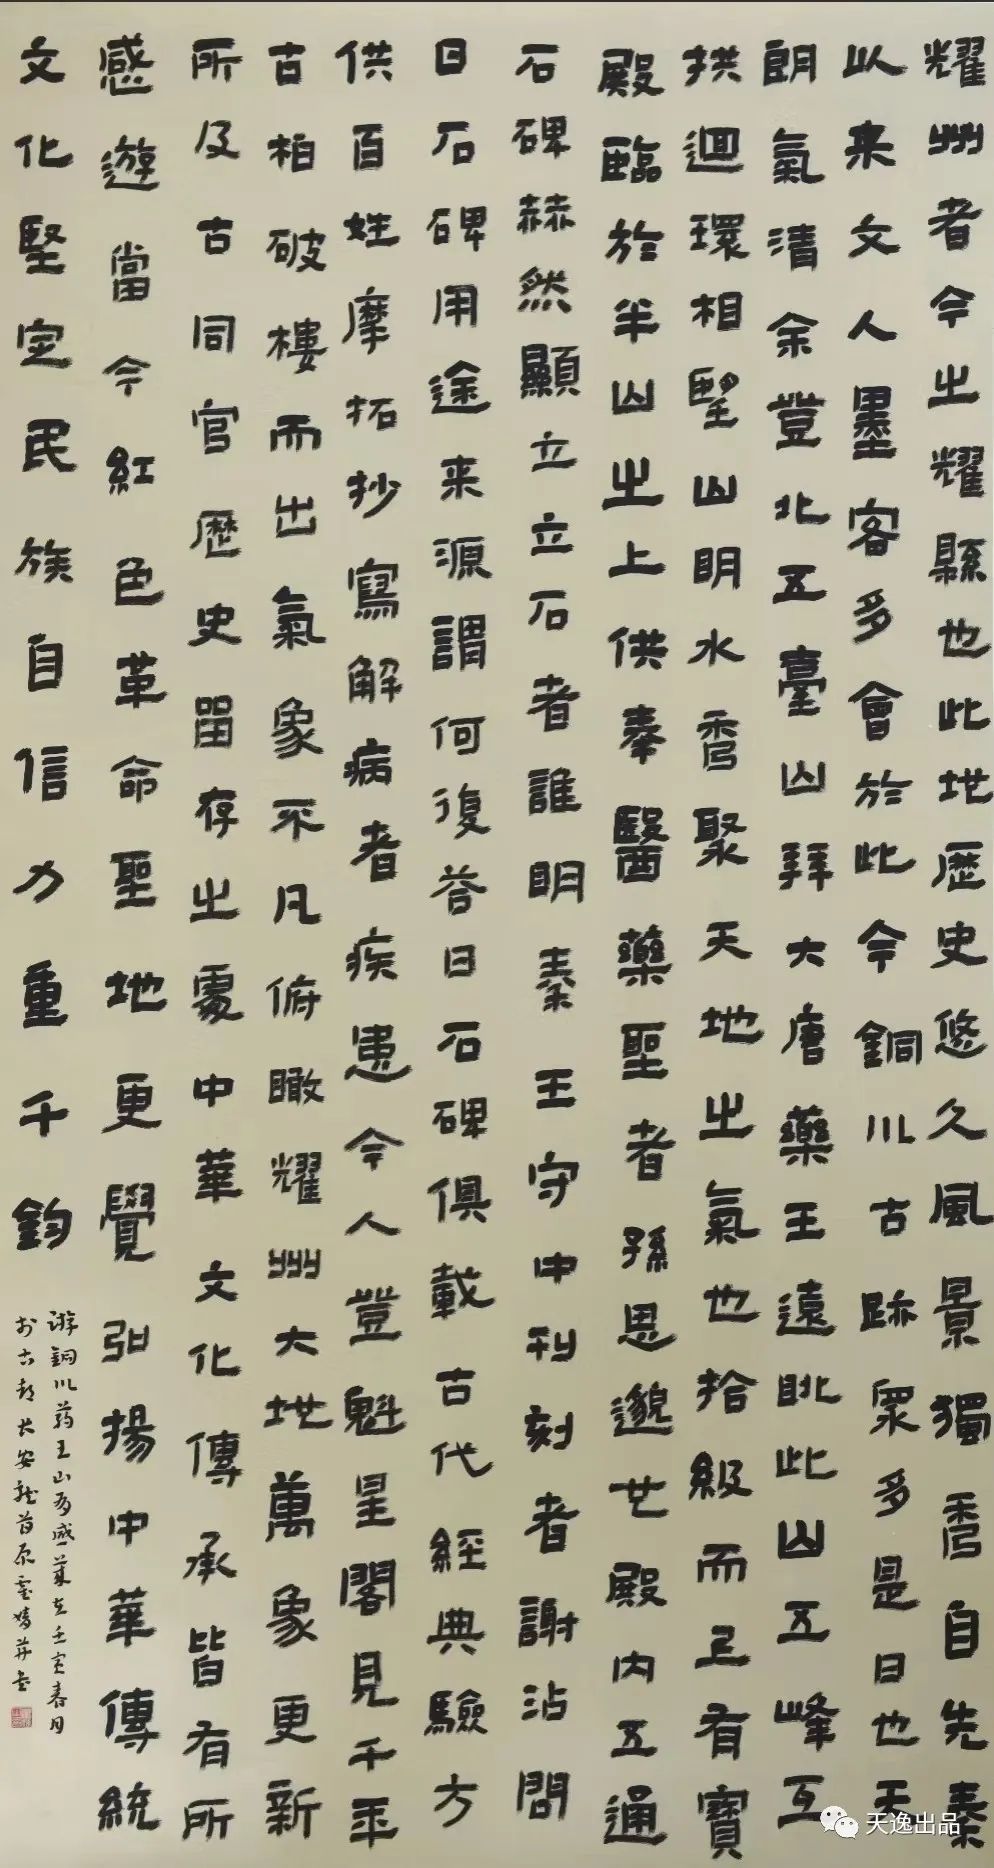 耀州者今之耀縣也此地歷史悠久風景獨秀自先秦
以來文人墨客多會於此今銅川古跡眾多是日也天
朗氣清余登北五臺山拜大唐藥王遠眺此山五峰互
拱迴環相望山明水秀聚天地之氣也拾級而上有寶
殿臨於半山之上供奉醫藥聖者孫思邈也殿內五通
石碑赫然顯立立石者誰明秦王守中刊刻者謝沾問
曰石碑用途來源謂何復答曰石碑俱載古代經典驗方
供百姓摩拓抄寫解病者疾患今人登魁星閣見千年
古柏破樓而出氣象不凡俯瞰耀州大地萬象更新
所及古同官歷史留存之處中華文化傳承皆有所
感遊當今紅色革命聖地更覺弘揚中華傳統
文化堅定民族自信力重千鈞
游銅川药王山有感 壬寅春月
於古都长安
天逸出品